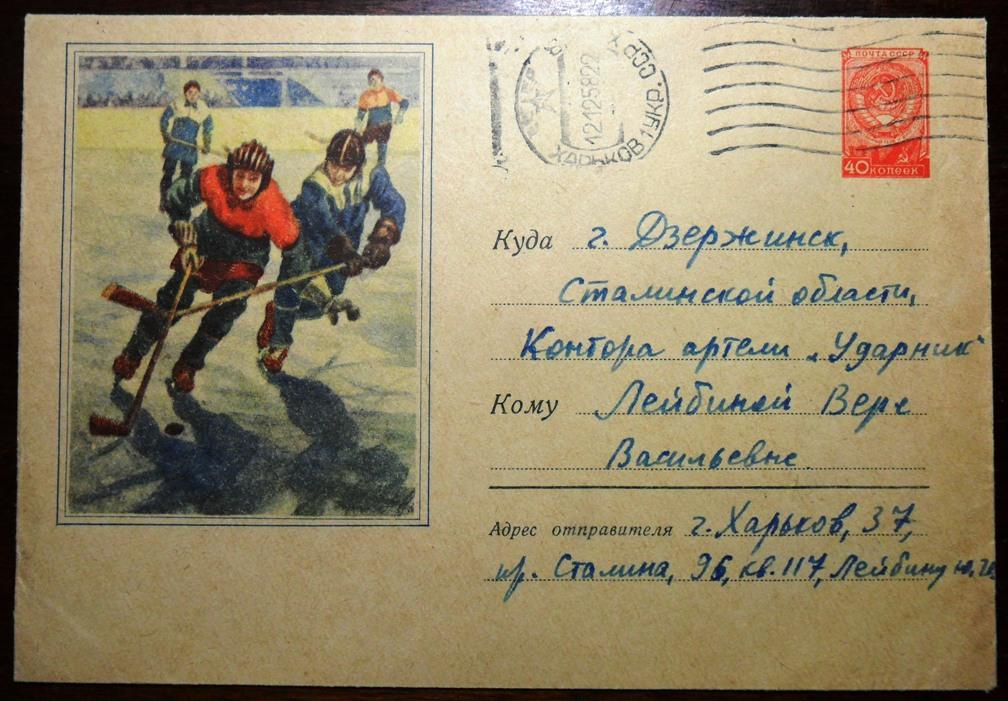 ХАРЬКОВ 1 УКР. ССР Х
12125822
ПОЧТА СССР
40 КОПЕЕК
Куда г. Дзержинск,
Сталинской области,
Контора артели „Ударник“
Кому Лейбиной Вере
Васильевне.
Адрес отправителя г. Харьков, 37,
пр. Сталина, 96, кв. 117, Лейбину Ю.